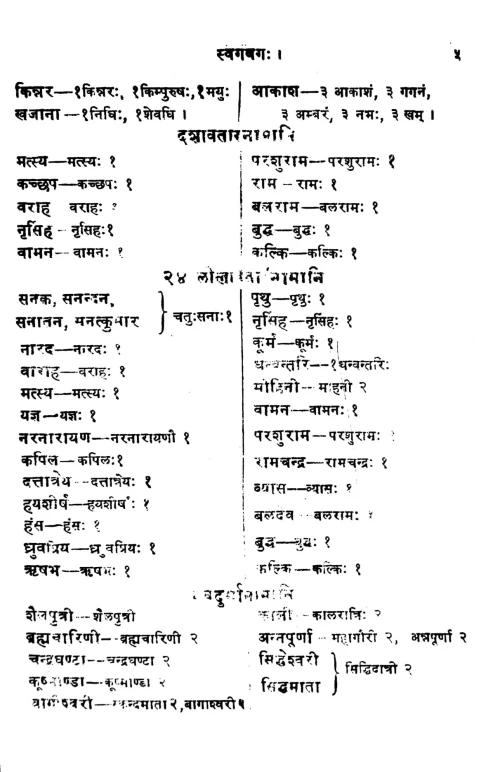 स्वर्गवर्गः ।
५
किन्नर—१किन्नरः, १किम्पुरुषः, १मयुः
खजाना—१निधिः, १शेवधि ।
आकाश—३ आकाशं, ३ गगनं,
३ अम्बरं, ३ नभः, ३ खम् ।
दशावतारनामानि
मत्स्य—मत्स्यः १
कच्छप—कच्छपः १
वराह वराहः
नृसिंह – नृसिंहः१
वामन-- वामनः १
परशुराम—परशुरामः १
राम – रामः १
बलराम—बलरामः १
बुद्ध—बुद्धः १
कल्कि—कल्किः १
२४ नामानि
सनक, सनन्दन,
सनातन, सनत्कुमार
चतुःसनाः१
नारद—नारदः १
वाराह—वराहः १
मत्स्य—मत्स्यः १
यज्ञ—यज्ञः १
नरनारायण—नरनारायणौ १
कपिल—कपिलः१
दत्तात्रेय--दत्तात्रेयः १
हयशीर्ष—हयशीर्षः १
हंस—हंसः १
ध्रुवप्रिय—ध्रुवप्रियः १
ऋषभ—ऋषभः १
पृथु—पृथुः १
नृसिंह—नृसिंहः १
कूर्म—कूर्मः १
धन्वन्तरि--१धन्वन्तरिः
मोहिनी — मोहनी २
वामन—वामनः १
परशुराम—परशुरामः
रामचन्द्र—रामचन्द्रः १
व्यास—व्यासः १
बलदेव – बलरामः १
बुद्ध—बुद्धः १
कल्कि—कल्किः १
शैलपुत्री--शैलपुत्री
ब्रह्मचारिणी--ब्रह्मचारिणी २
चन्द्रघण्टा--चन्द्रघण्टा २
कूष्माण्डा—कूष्माण्डा २
वागीश्वरी—स्कन्दमाता २,बागाश्वरी
काली -- कालरात्रिः २
अन्नपूर्णा – महागौरी २, अन्नपूर्णा २
सिद्धेश्वरी
सिद्धमाता
सिद्धिदात्री २